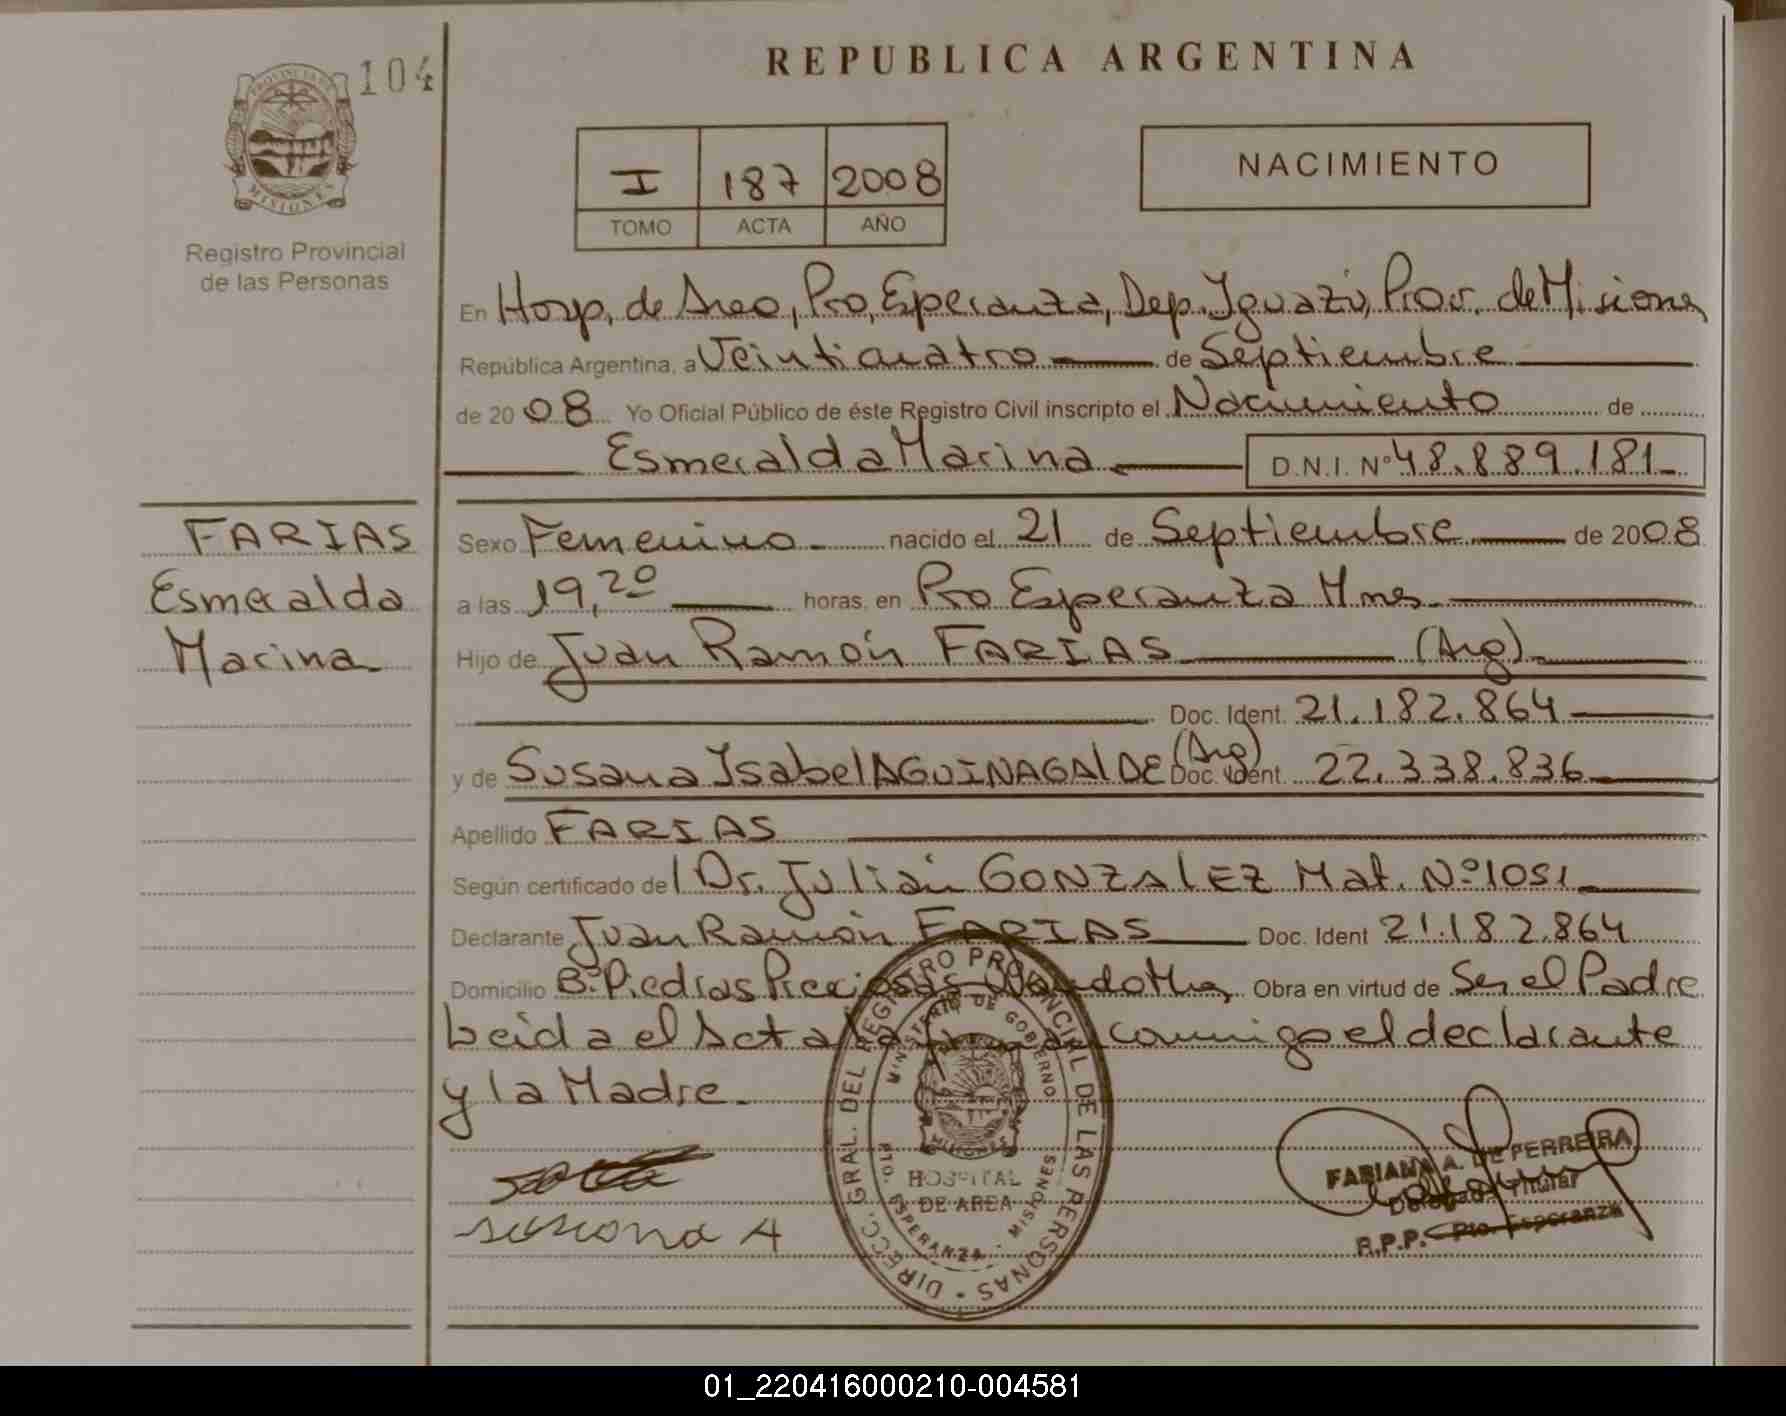 104
PROVINCIA DE
MISIONES
Registro Provincial
de las Personas
REPUBLICA ARGENTINA
I 187 2008
TOMO ACTA AÑO
NACIMIENTO
En Hosp. de Area, Pto, Esperanza, Dep. Iguazú, Prov. de Misiones
República Argentina, a Veinticuatro de Septiembre
de 2008 Yo Oficial Público de éste Registro Civil inscripto el Nacimiento de
Esmeralda Marina D.N.I. Nº 48.889.181
FARIAS
Esmeralda
Marina
Sexo Femenino nacido el 21 de Septiembre de 2008
a las 19,20 horas, en Pto Esperanza Mnes
Hijo de Juan Ramón FARIAS (Arg)
Doc. Ident. 21.182.864
y de Susana Isabel AGUINAGALDE (Arg) Doc. Ident. 22.338.836
Apellido FARIAS
Según certificado del Dr. Julián GONZALEZ Mat. Nº 1051
Declarante Juan Ramón FARIAS Doc. Ident 21.182.864
Domicilio Bº Piedras Preciosas Wanda Mnes Obra en virtud de Ser el Padre
Leida el Acta la firman conmigo el declarante
y la Madre.
DIRECC. GRAL. DEL REGISTRO PROVINCIAL DE LAS PERSONAS
MINISTERIO DE GOBIERNO
HOSPITAL
DE AREA
PTO. ESPERANZA - MISIONES
FABIANA A. DE FERREIRA
Delegada Titular
R.P.P. Pto. Esperanza
01_220416000210-004581